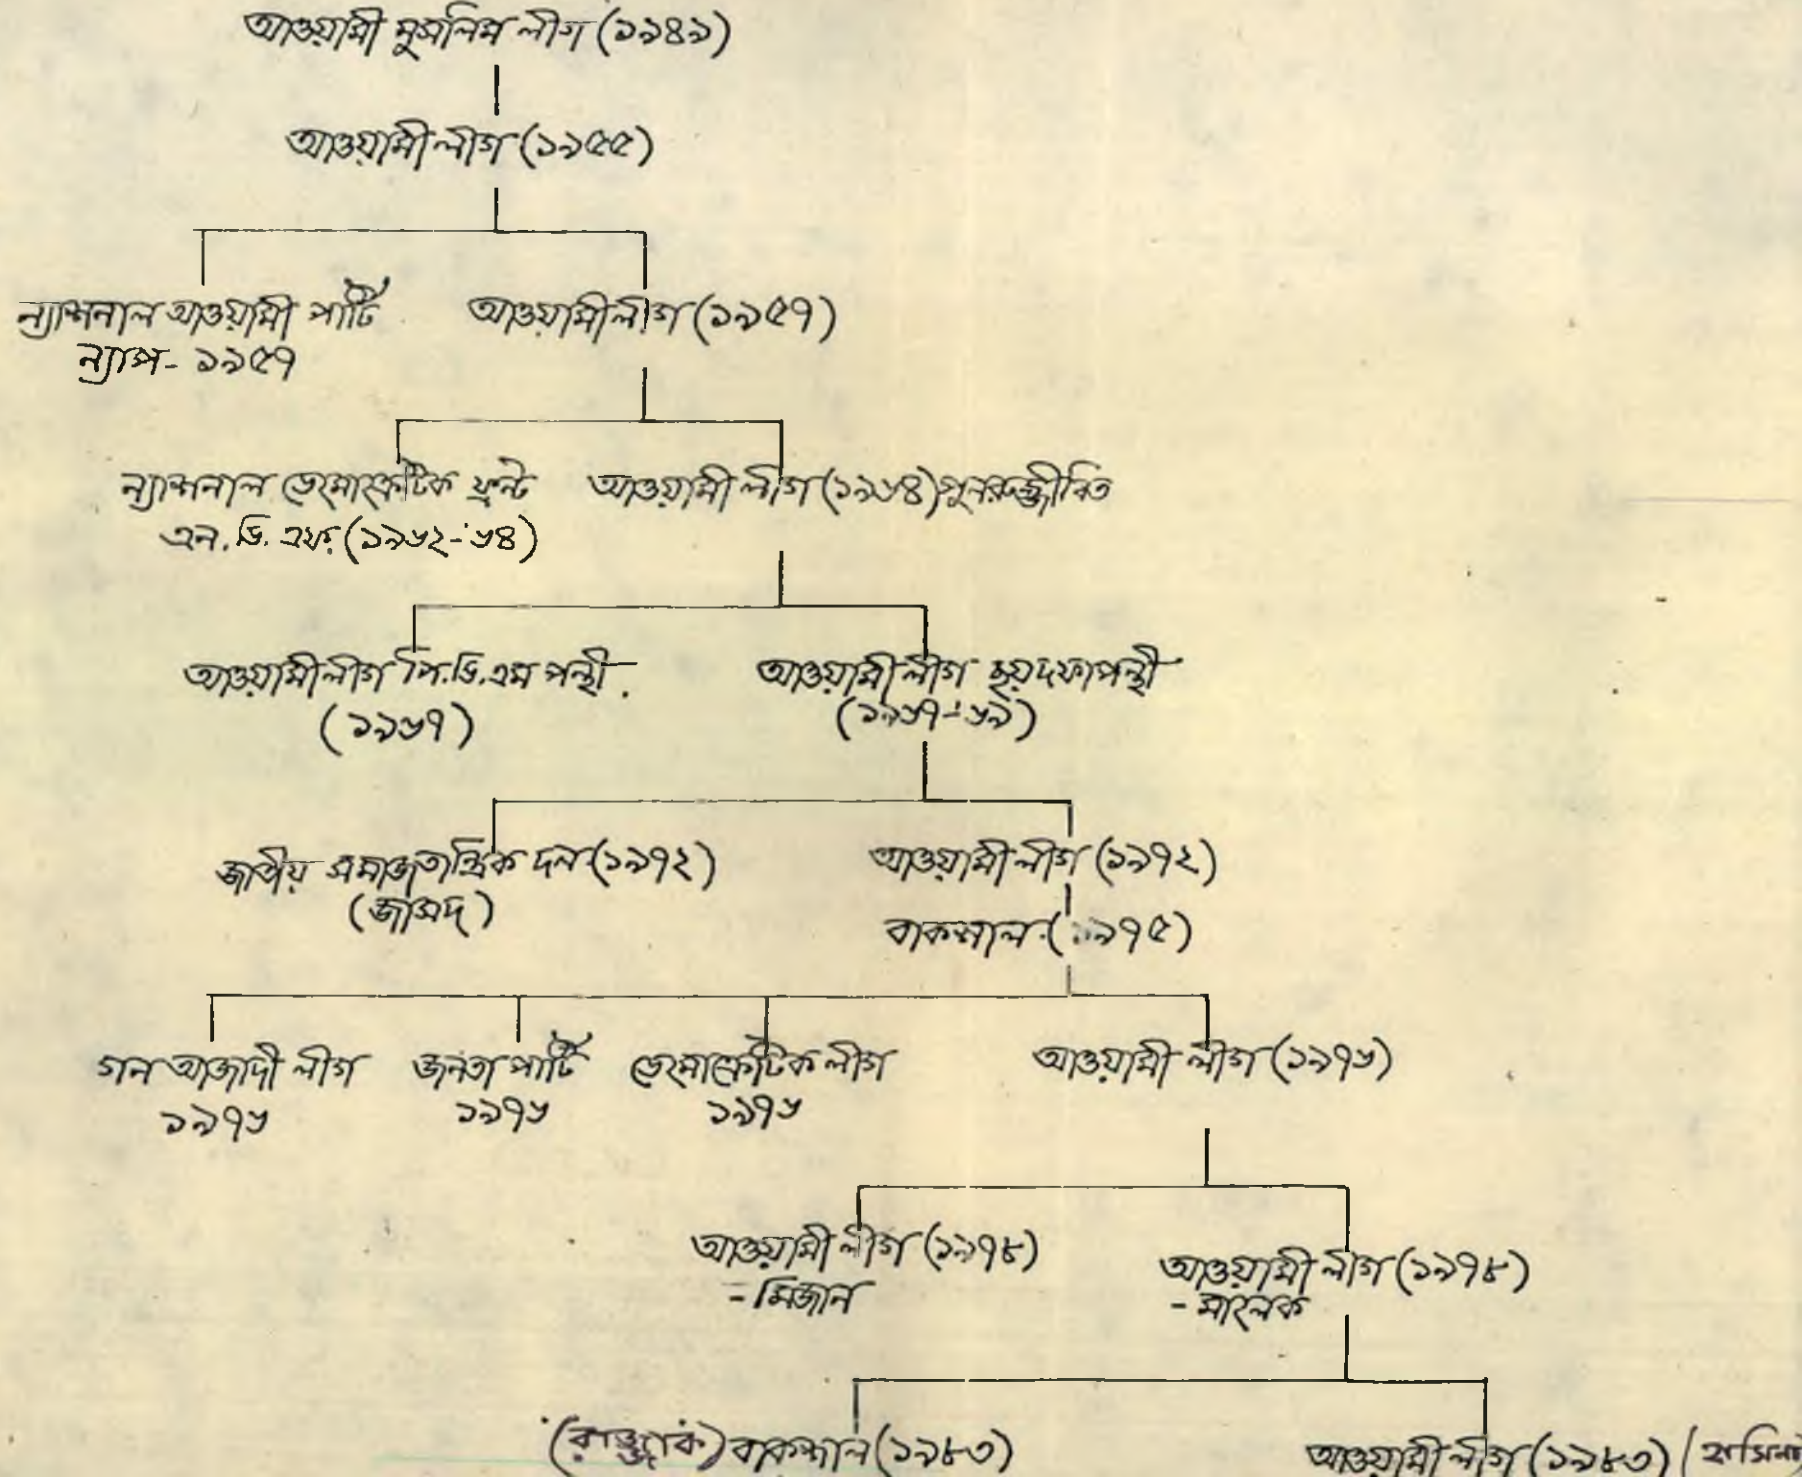 আওয়ামী মুসলিম লীগ (১৯৪৯)
আওয়ামী লীগ (১৯৫৫)
ন্যাশনাল আওয়ামী পার্টি
ন্যাপ - ১৯৫৭
আওয়ামী লীগ (১৯৫৭)
ন্যাশনাল ডেমোক্রেটিক ফ্রন্ট
এন. ডি. এফ. (১৯৬২-'৬৪)
আওয়ামী লীগ (১৯৬৪) পুনরুজ্জীবিত
আওয়ামী লীগ পি.ডি.এম পন্থী
(১৯৬৭)
আওয়ামী লীগ ছয়দফাপন্থী
(১৯৬৭-'৬৯)
জাতীয় সমাজতান্ত্রিক দল (১৯৭২)
(জাসদ)
আওয়ামী লীগ (১৯৭২)
বাকশাল (১৯৭৫)
গন আজাদী লীগ
১৯৭৬
জনতা পার্টি
১৯৭৬
ডেমোক্রেটিক লীগ
১৯৭৬
আওয়ামী লীগ (১৯৭৬)
আওয়ামী লীগ (১৯৭৮)
- মিজান
আওয়ামী লীগ (১৯৭৮)
- মালেক
(রাজ্জাক) বাকশাল (১৯৮৩)
আওয়ামী লীগ (১৯৮৩) (হাসিনা